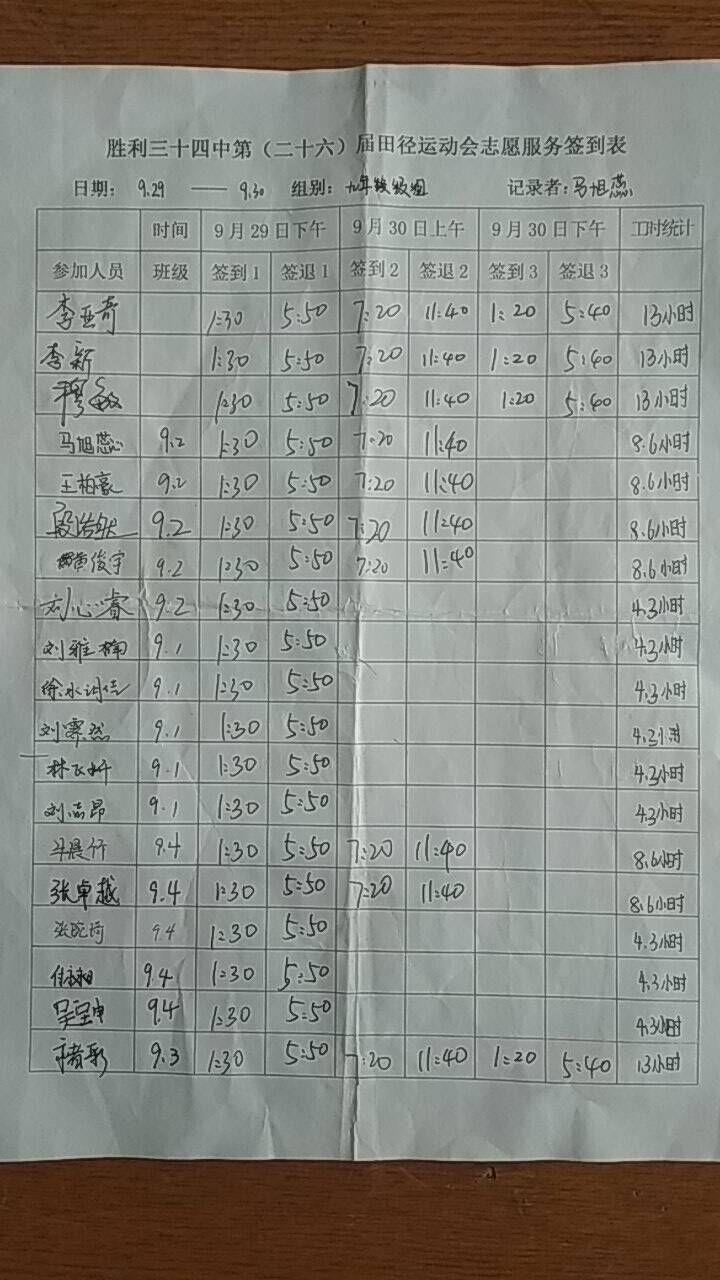 胜利三十四中第（二十六）届田径运动会志愿服务签到表
日期： 9.29 —— 9.30 组别：九年级级组 记录者：马旭蕊
时间 9月29日下午 9月30日上午 9月30日下午 工时统计
参加人员 班级 签到1 签退1 签到2 签退2 签到3 签退3
李亚奇 1:30 5:50 7:20 11:40 1:20 5:40 13小时
李新 1:30 5:50 7:20 11:40 1:20 5:40 13小时
穆敏 1:30 5:50 7:20 11:40 1:20 5:40 13小时
马旭蕊 9.2 1:30 5:50 7:20 11:40 8.6小时
王柏豪 9.2 1:30 5:50 7:20 11:40 8.6小时
段浩然 9.2 1:30 5:50 7:20 11:40 8.6小时
俊宇 9.2 1:30 5:50 7:20 11:40 8.6小时
刘心睿 9.2 1:30 5:50 4.3小时
刘雅楠 9.1 1:30 5:50 4.3小时
徐水 9.1 1:30 5:50 4.3小时
刘霁然 9.1 1:30 5:50 4.3小时
林 9.1 1:30 5:50 4.3小时
刘志昂 9.1 1:30 5:50 4.3小时
9.4 1:30 5:50 7:20 11:40 8.6小时
张卓越 9.4 1:30 5:50 7:20 11:40 8.6小时
张 9.4 1:30 5:50 4.3小时
9.4 1:30 5:50 4.3小时
9.4 1:30 5:50 4.3小时
9.3 1:30 5:50 7:20 11:40 1:20 5:40 13小时